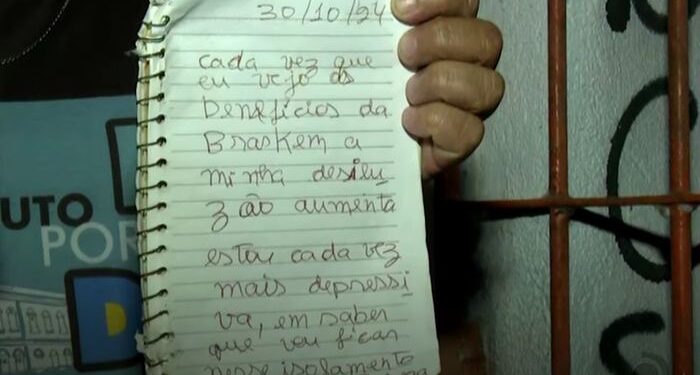 30/10/24
cada vez que
eu vejo os
beneficios da
Braskem a
minha desilu
zão aumenta
estou cada vez
mais depressi
va, em saber
que vou ficar
nesse isolamento
UTO
POR
D